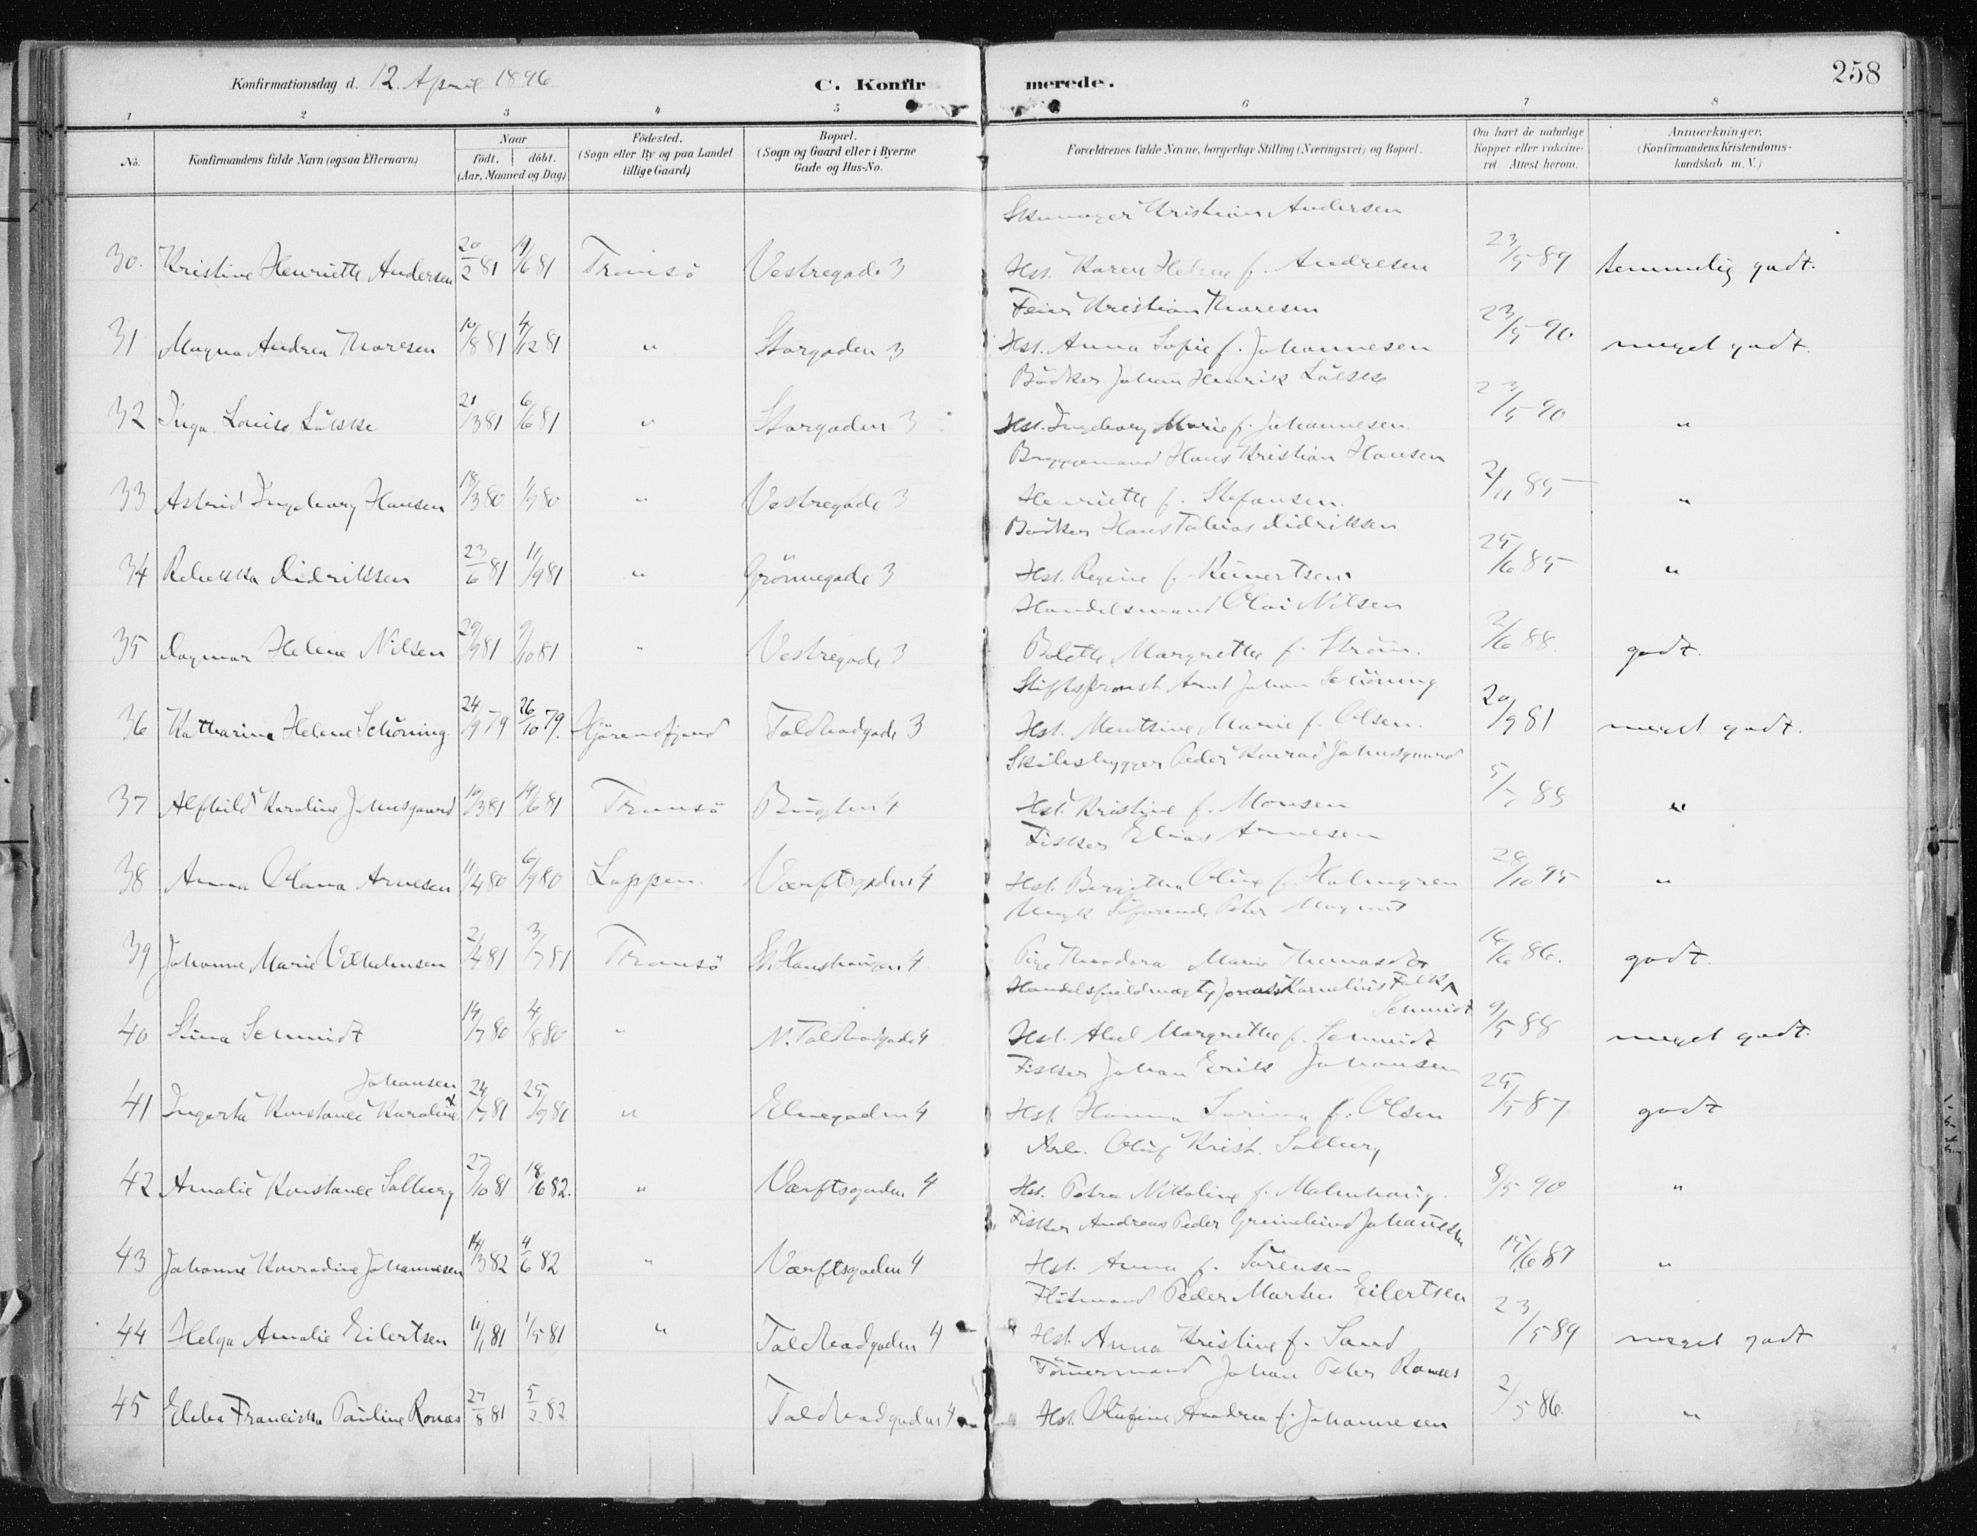 258
Konfirmationsdag d. 12. April 1896
C. Konfirmerede.
1 2 3 4 5 6 7 8
No. Konfirmandens fulde Navn (ogsaa Efternavn) Naar födt. döbt. (Aar, Maaned og Dag) Födested. (Sogn eller By og paa Landet tillige Gaard) Bopæl. (Sogn og Gaard eller i Byerne Gade og Hus-No. Forældrenes fulde Navne, borgerlige Stilling (Næringsvei) og Bopæl. Om havt de naturlige Kopper eller vakcineret Attest herom. Anmærkninger. (Konfirmandens Kristendomskundskab m. V.)
Skomager Kristian Andersen
30. Kristine Henriette Andersen 20/2 81 19/6 81 Tromsö Vestregade 3 Hst. Karen Helene f. Andresen 23/5 89 temmelig godt.
Feier Kristian Thoresen
31 Magna Andrea Thoresen 10/8 81 4/12 81 " Storgaden 3 Hst. Anna Sofie f. Johannesen 23/5 90 meget godt.
Bödker Johan Henrik Lökke
32 Inga Louise Lökke 21/3 81 6/6 81 " Storgaden 3 Hst. Ingeborg Marie f. Johannesen 23/5 90 "
Bryggemand Hans Kristian Hansen
33 Astrid Ingeborg Hansen 18/3 80 80 " Vestregade 3 Henriette f. Stefansen. 2/11 85 "
Bödker Hans Tobias Didriksen
34 Rebekka Didriksen 23/6 81 11/9 81 " Grönnegade 3 Hst. Regine f. Reinertsen 25/6 85 "
Handelsmand Olai Nilsen
35 Dagmar Helene Nilsen 29/9 81 9/10 81 " Vestregade 3 Bolette Margrethe f. Ström. 2/6 88. godt.
Stiftsprovst Arnt Johan Schöning
36 Katharina Helene Schöning 24/9 79 26/10 79. Toldbodgade 3 Hst. Mentsine Marie f. Olsen. 20/9 81 meget godt.
Peder Konrad Johnsgaard
37 Alfhild Karoline Johnsgaard 10/3 81 19/6 81 Tromsö 4 Hst. Kristine f. Monsen 5/7 88 "
Fisker Elias Arnesen
38 Anna Olava Arnesen 11/4 80 6/9 80 Loppen. Værftsgaden 4 Hst. Birgitha Oline f. Holmgren 28/10 95 "
Ungk. Söfarende Peter
39 Johanne Marie Vilhelmsen 2/4 81 3/7 81 Tromsö St. Hanshaugen 4 Pige Theodora Marie 16/6 86. godt.
Handelsfuldmægtig Jonas Kornelius Falk
Schmidt
40 Stina Schmidt 19/7 80 4/8 80 " N. Toldbodgade 4 Hst. Abel Margrethe f. Schmidt 9/5 88 meget godt.
Fisker Johan Erik Johansen
Johansen
41 Ingerta Konstance Karoline 24/7 81 25/9 81 " Elvegaden 4 Hst. Hanna f. Olsen 25/5 87 godt
Arb. Oluf Krist. Solberg
42 Amalie Konstance Solberg 27/10 81 18/6 82. " Værftsgaden 4 Hst. Petra Nikoline f. Malmhaug. 8/5 90 "
Fisker Andreas Peder Johannesen
43 Johanne Konradine Johannesen 14/3 82 4/6 82 " Værftsgaden 4 Hst. Anna f. Sörensen 15/6 87 "
Peder Martin Eilertsen
44 Helga Amalie Eilertsen 11/1 81 1/5 81 " Toldbodgaden 4 Hst. Anna Kristine f. Sand 23/5 89 meget godt
Tömmermand Johan Peter Ronæs
45 Ebba Franciska Pauline Ronæs 27/8 81 5/2 82 Toldbodgaden 4 Hst. Olufine Andrea f. Johannesen 2/5 86. "